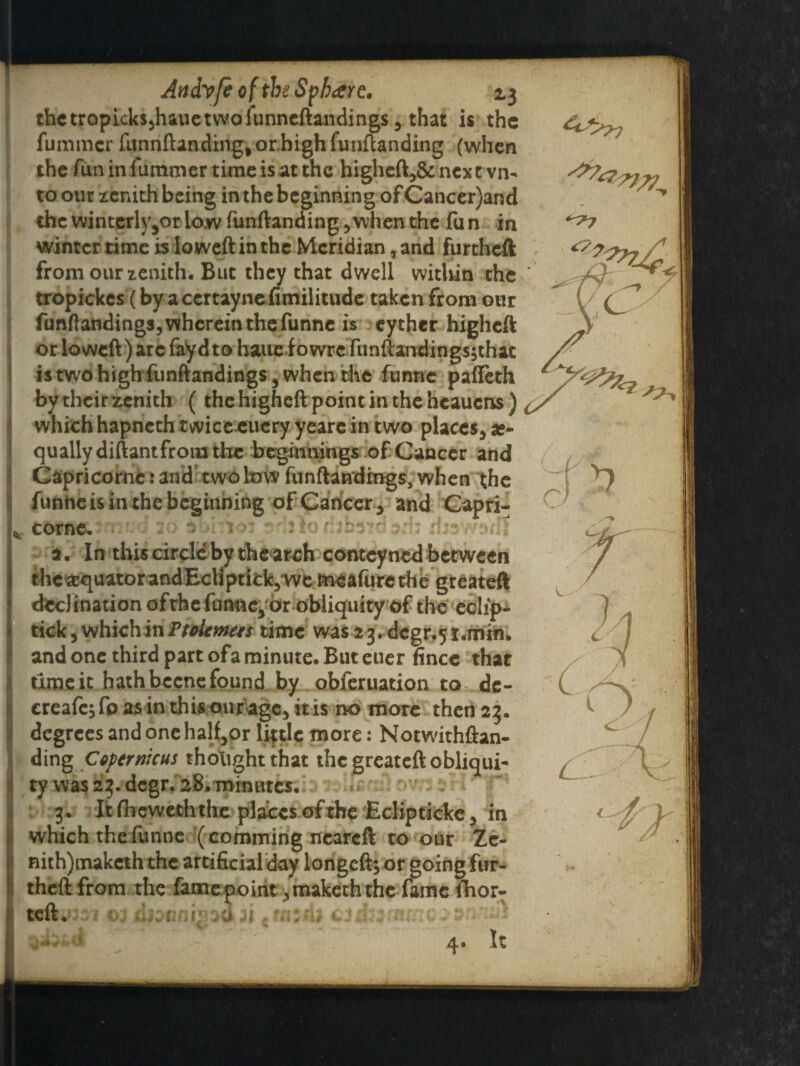 Analyſe of the Sphære. 23
the tropicks, haue two ſunneſtandings, that is the
ſummer ſunnſtanding, or high ſunſtanding (when
the ſun in ſummer time is at the higheſt, & next vn-
to our zenith being in the beginning of Cancer) and
the winterly, or low ſunſtanding, when the ſun in
winter time is loweſt in the Meridian, and furtheſt
from our zenith. But they that dwell within the
tropickes (by a certayne ſimilitude taken from our
ſunſtandings, wherein the ſunne is eyther higheſt
or loweſt) are ſayd to haue fowre ſunſtandings; that
is two high ſunſtandings, when the ſunne paſſeth
by their zenith ( the higheſt point in the heauens )
which hapneth twice euery yeare in two places, æ-
qually diſtant from the beginnings of Cancer and
Capricorne: and two low ſunſtandings, when the
ſunne is in the beginning of Cancer, and Capri-
corne.
2. In this circle by the arch conteyned between
the æquator and Ecliptick, we meaſure the greateſt
declination of the ſunne, or obliquity of the eclip-
tick, which in Ptolemees time was 23. degr. 51. min.
and one third part of a minute. But euer ſince that
time it hath beene found by obſeruation to de-
creaſe; ſo as in this our age, it is no more then 23.
degrees and one half, or little more: Notwithſtan-
ding Copernicus thought that the greateſt obliqui-
ty was 23. degr. 28. minutes.
3. It ſheweth the places of the Eclipticke, in
which the ſunne (comming neareſt to our Ze-
nith) maketh the artificial day longeſt; or going fur-
theſt from the ſame point, maketh the ſame ſhor-
teſt.
4. It